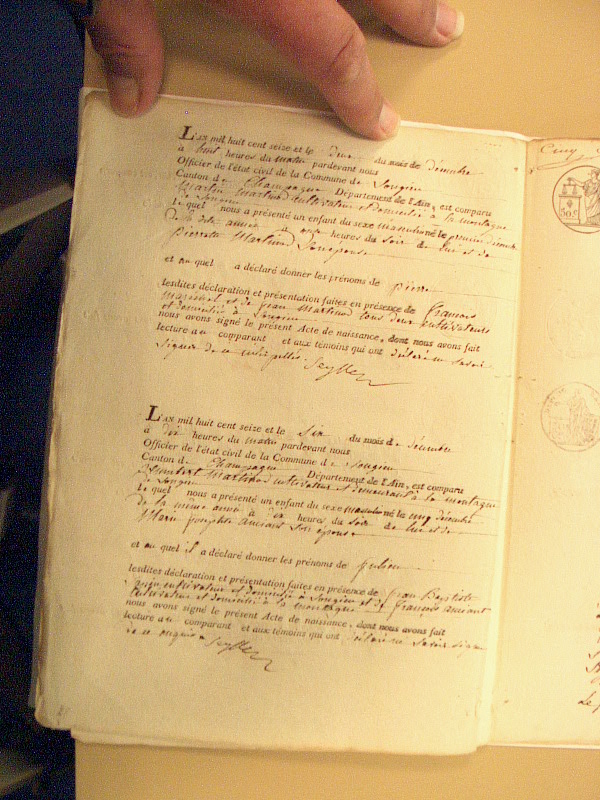 L'AN mil huit cent seize et le deux du mois de décembre
à huit heures du matin pardevant nous
Officier de l'état civil de la Commune de Songieu
Canton de Champagne Département de l'Ain, est comparu
Martin Martinod cultivateur et domicilié à la montagne
de Songieu
le quel nous a présenté un enfant du sexe masculin né le premier décembre
de la dite année à onze heures du soir de lui et de
Pierrette Martinod son épouse
et au quel a déclaré donner les prénoms de Pierre
lesdites déclaration et présentation faites en présence de françois
et de jean Martinod tous deux cultivateurs
et domiciliés à Songieu
nous avons signé le présent Acte de naissance, dont nous avons fait
lecture au comparant et aux témoins qui ont déclaré ne savoir
signer de ce interpellés. Seyller
L'AN mil huit cent seize et le six du mois de décembre
à dix heures du matin pardevant nous
Officier de l'état civil de la Commune de Songieu
Canton de Champagne Département de l'Ain, est comparu
humbert Martinod cultivateur et demeurant à la montagne
de Songieu
le quel nous a présenté un enfant du sexe masculin né le cinq décembre
de la même année à dix heures du soir de lui et de
Marie josephte son épouse
et au quel il a déclaré donner les prénoms de julien
lesdites déclaration et présentation faites en présence de jean Baptiste
cultivateur et domicilié à Songieu et de françois
cultivateur et domicilié à la montagne
nous avons signé le présent Acte de naissance, dont nous avons fait
lecture au comparant et aux témoins qui ont déclaré ne savoir signer
de ce requis Seyller
Cinq
50 c